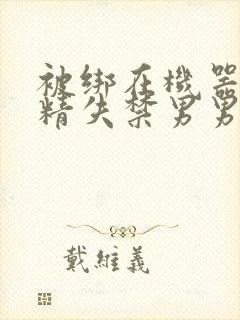 被绑在機器
精失禁男男
戴維義